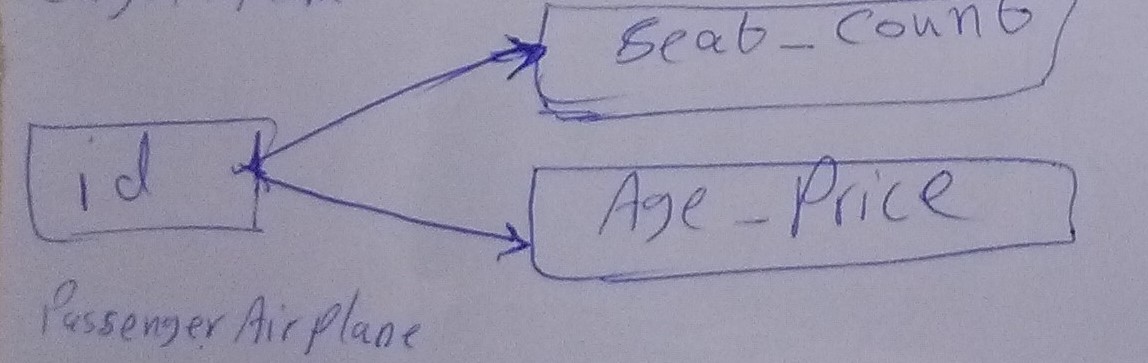 Seat_Count
id
Age_Price
Passenger Airplane